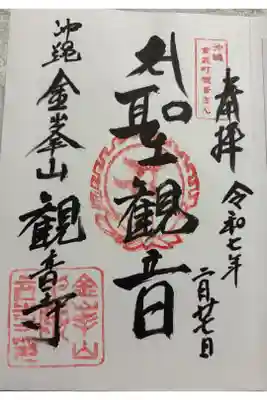 奉拝
令和七年
二月廿七日
沖縄
金武町観音さん
聖観音
沖縄 金峯山 観音寺
金峯山